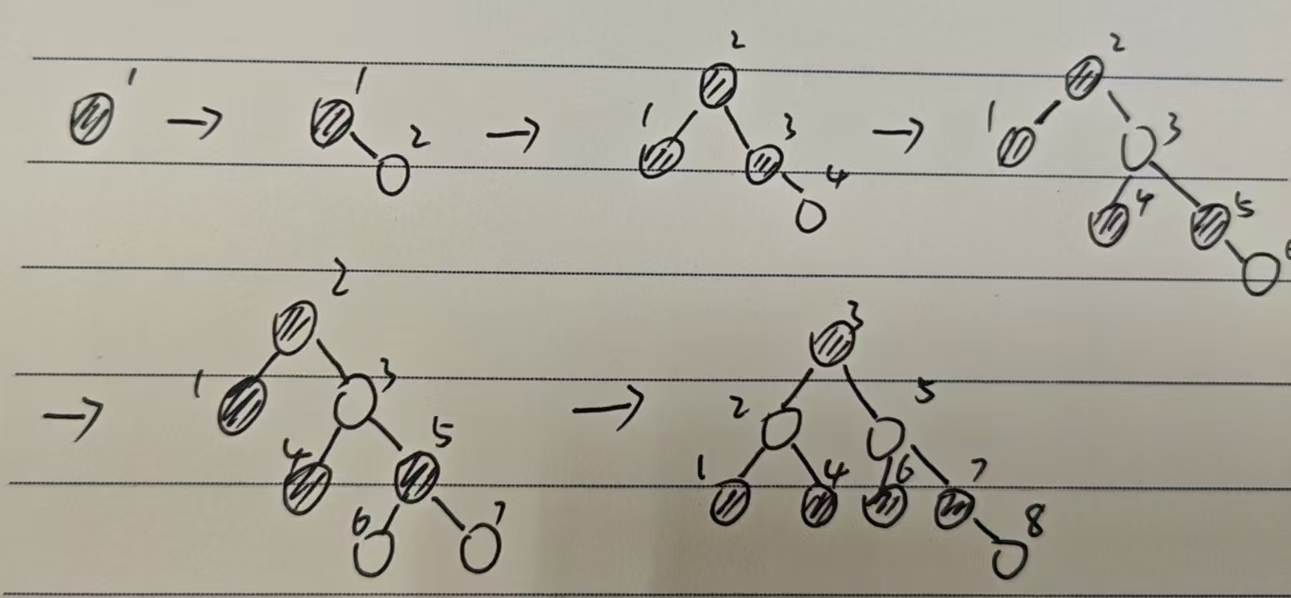 1 → 1 2 → 2 1 3 4 → 2 1 3 4 5
→ 2 1 3 4 5 6 7 → 3 2 5 1 4 6 7 8